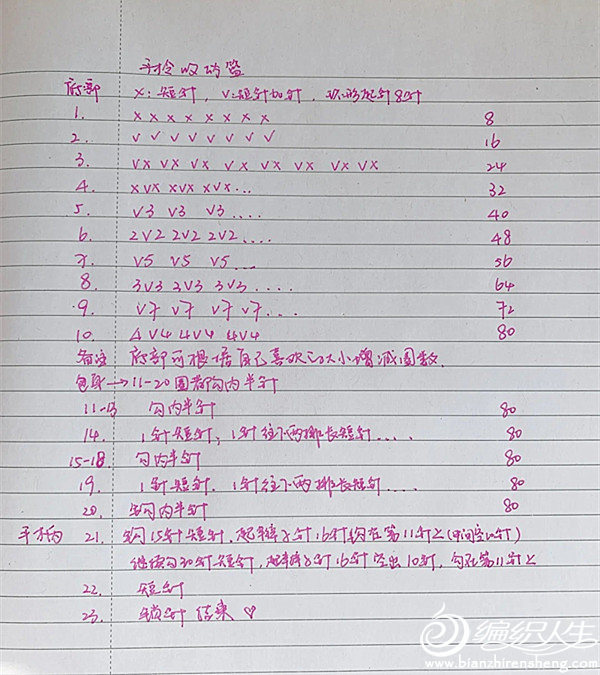 手拎收纳篮
底部 X:短针, V:短针加针, 环形起针8针
1. X X X X X X X X 8
2. V V V V V V V V 16
3. VX VX VX VX VX VX VX VX 24
4. XVX XVX XVX... 32
5. V3 V3 V3.... 40
6. 2V2 2V2 2V2.... 48
7. V5 V5 V5... 56
8. 3V3 3V3 3V3.... 64
9. V7 V7 V7 V7.... 72
10. 4V4 4V4 4V4 80
备注 底部可根据自己喜欢的大小增减圈数.
包身→11-20圈都勾内半针
11-13 勾内半针 80
14. 1针短针, 1针往下两排长短针.... 80
15-18. 勾内半针 80
19. 1针短针. 1针往下两排长短针.... 80
20. 勾内半针 80
手柄 21. 勾15针短针, 起辫子针16针勾在第11针上(中间空10针)
继续勾30针短针, 起辫子针16针空出10针, 勾在第11针上
22. 短针
23. 锁针 结束 ♡
编织人生
www.bianzhirensheng.com